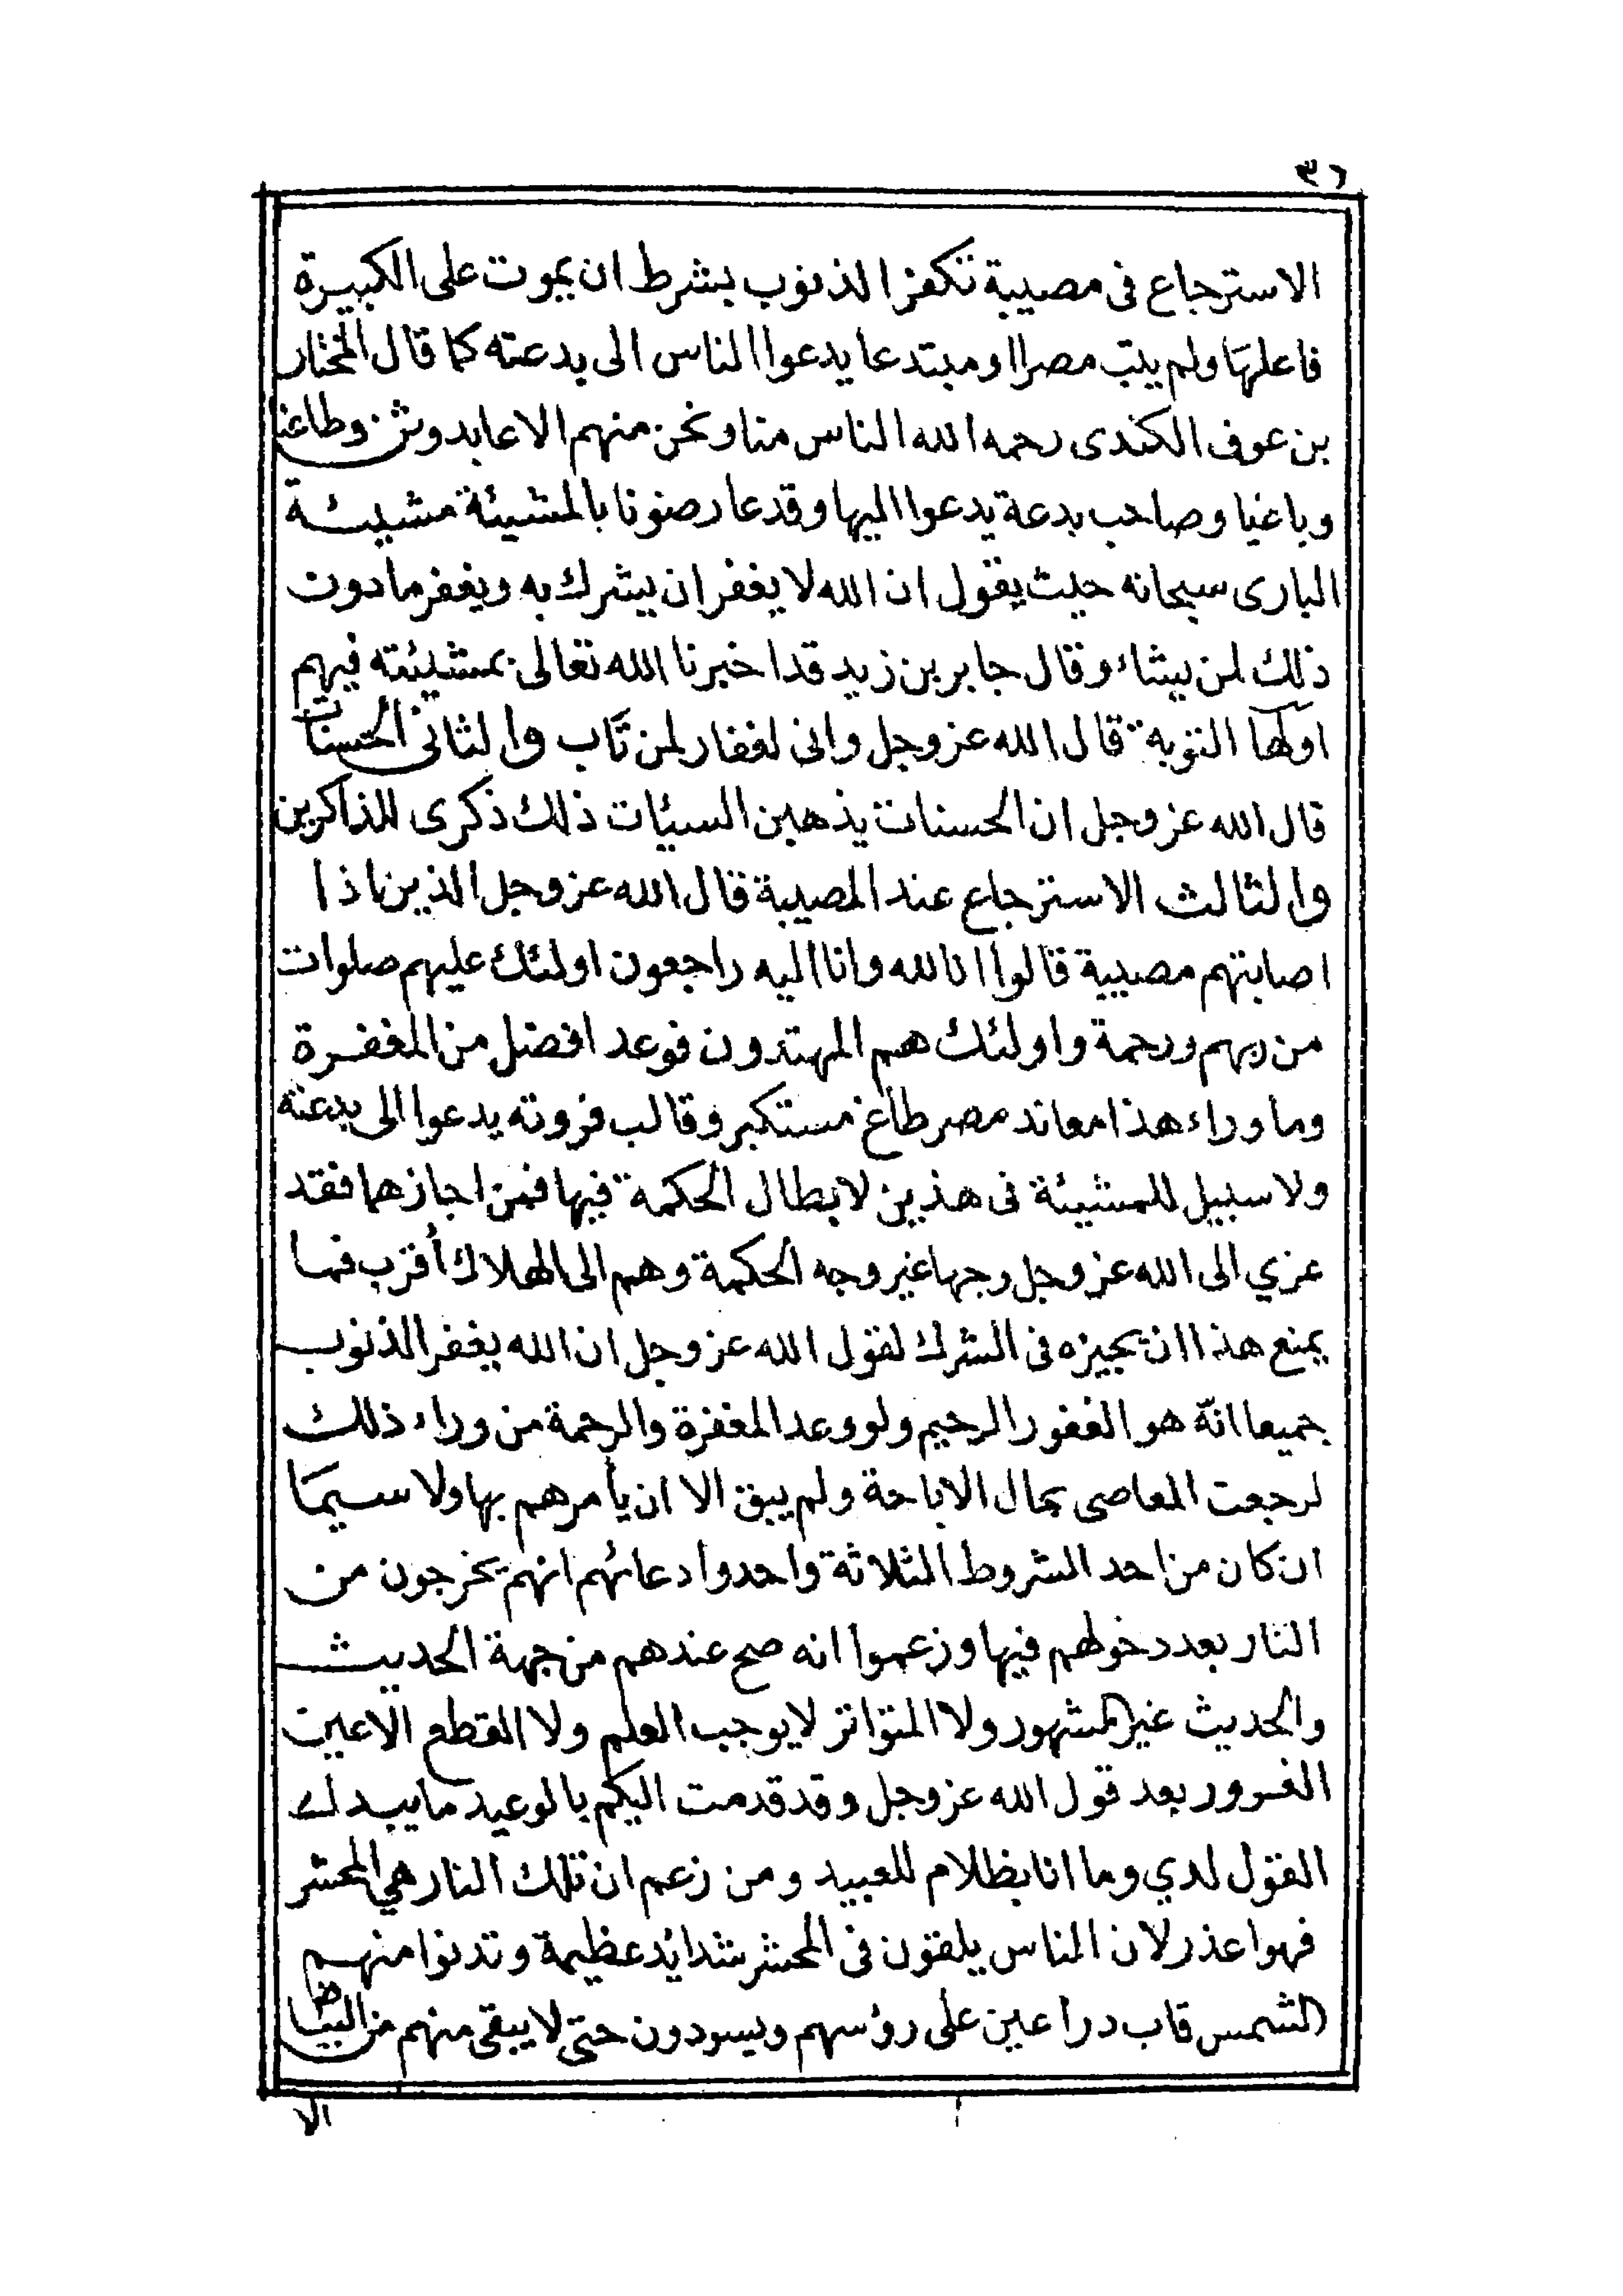 ٣٦
الاسترجاع فى مصيبة تكفر الذنوب بشرط ان يموت على الكبيرة
فاعلها ولم يتب مصرا او مبتدعا يدعوا الناس الى بدعته كما قال المختار
بن عوف الكندى رحمه الله الناس منا ونحن منهم الا عابد وثن وطاغيا
وباغيا وصاحب بدعة يدعوا اليها وقد عارضونا بالمشيئة مشيئة
البارى سبحانه حيث يقول ان الله لا يغفر ان يشرك به ويغفر ما دون
ذلك لمن يشاء وقال جابر بن زيد قد اخبرنا الله تعالى بمشيئته فيهم
اولها التوبة قال الله عز وجل وانى لغفار لمن تاب والثانى الحسنات
قال الله عز وجل ان الحسنات يذهبن السيئات ذلك ذكرى للذاكرين
والثالث الاسترجاع عند المصيبة قال الله عز وجل الذين اذا
اصابتهم مصيبة قالوا انا لله وانا اليه راجعون اولئك عليهم صلوات
من ربهم ورحمة واولئك هم المهتدون فوعد افضل من المغفرة
وما وراء هذا معاند مصر طاغ مستكبر وقالب فروته يدعوا الى بدعته
ولا سبيل للمشيئة فى هذين لابطال الحكمة فيها فمن اجازهما فقد
عزي الى الله عز وجل وجها غير وجه الحكمة وهم الى الهلاك أقرب فما
يمنع هذا ان يجيزه فى الشرك لقول الله عز وجل ان الله يغفر الذنوب
جميعا انّه هو الغفور الرحيم ولو وعد المغفرة والرحمة من وراء ذلك
لرجعت المعاصى بحال الاباحة ولم يبق الا ان يأمرهم بها ولا سيما
ان كان من احد الشروط الثلاثة واحد وادعائهم انهم يخرجون من
النار بعد دخولهم فيها وزعموا انه صح عندهم من جهة الحديث
والحديث غير المشهور ولا المتواتر لا يوجب العلم ولا القطع الا عين
الغرور بعد قول الله عز وجل وقد قدمت اليكم بالوعيد ما يبدل
القول لدي وما انا بظلام للعبيد ومن زعم ان تلك النار هي المحشر
فهوا عذر لان الناس يلقون فى المحشر شدايد عظيمة وتدنوا منهم
الشمس قاب دراعين على رؤسهم ويسودون حتى لا يبقى منهم من البياض
الا